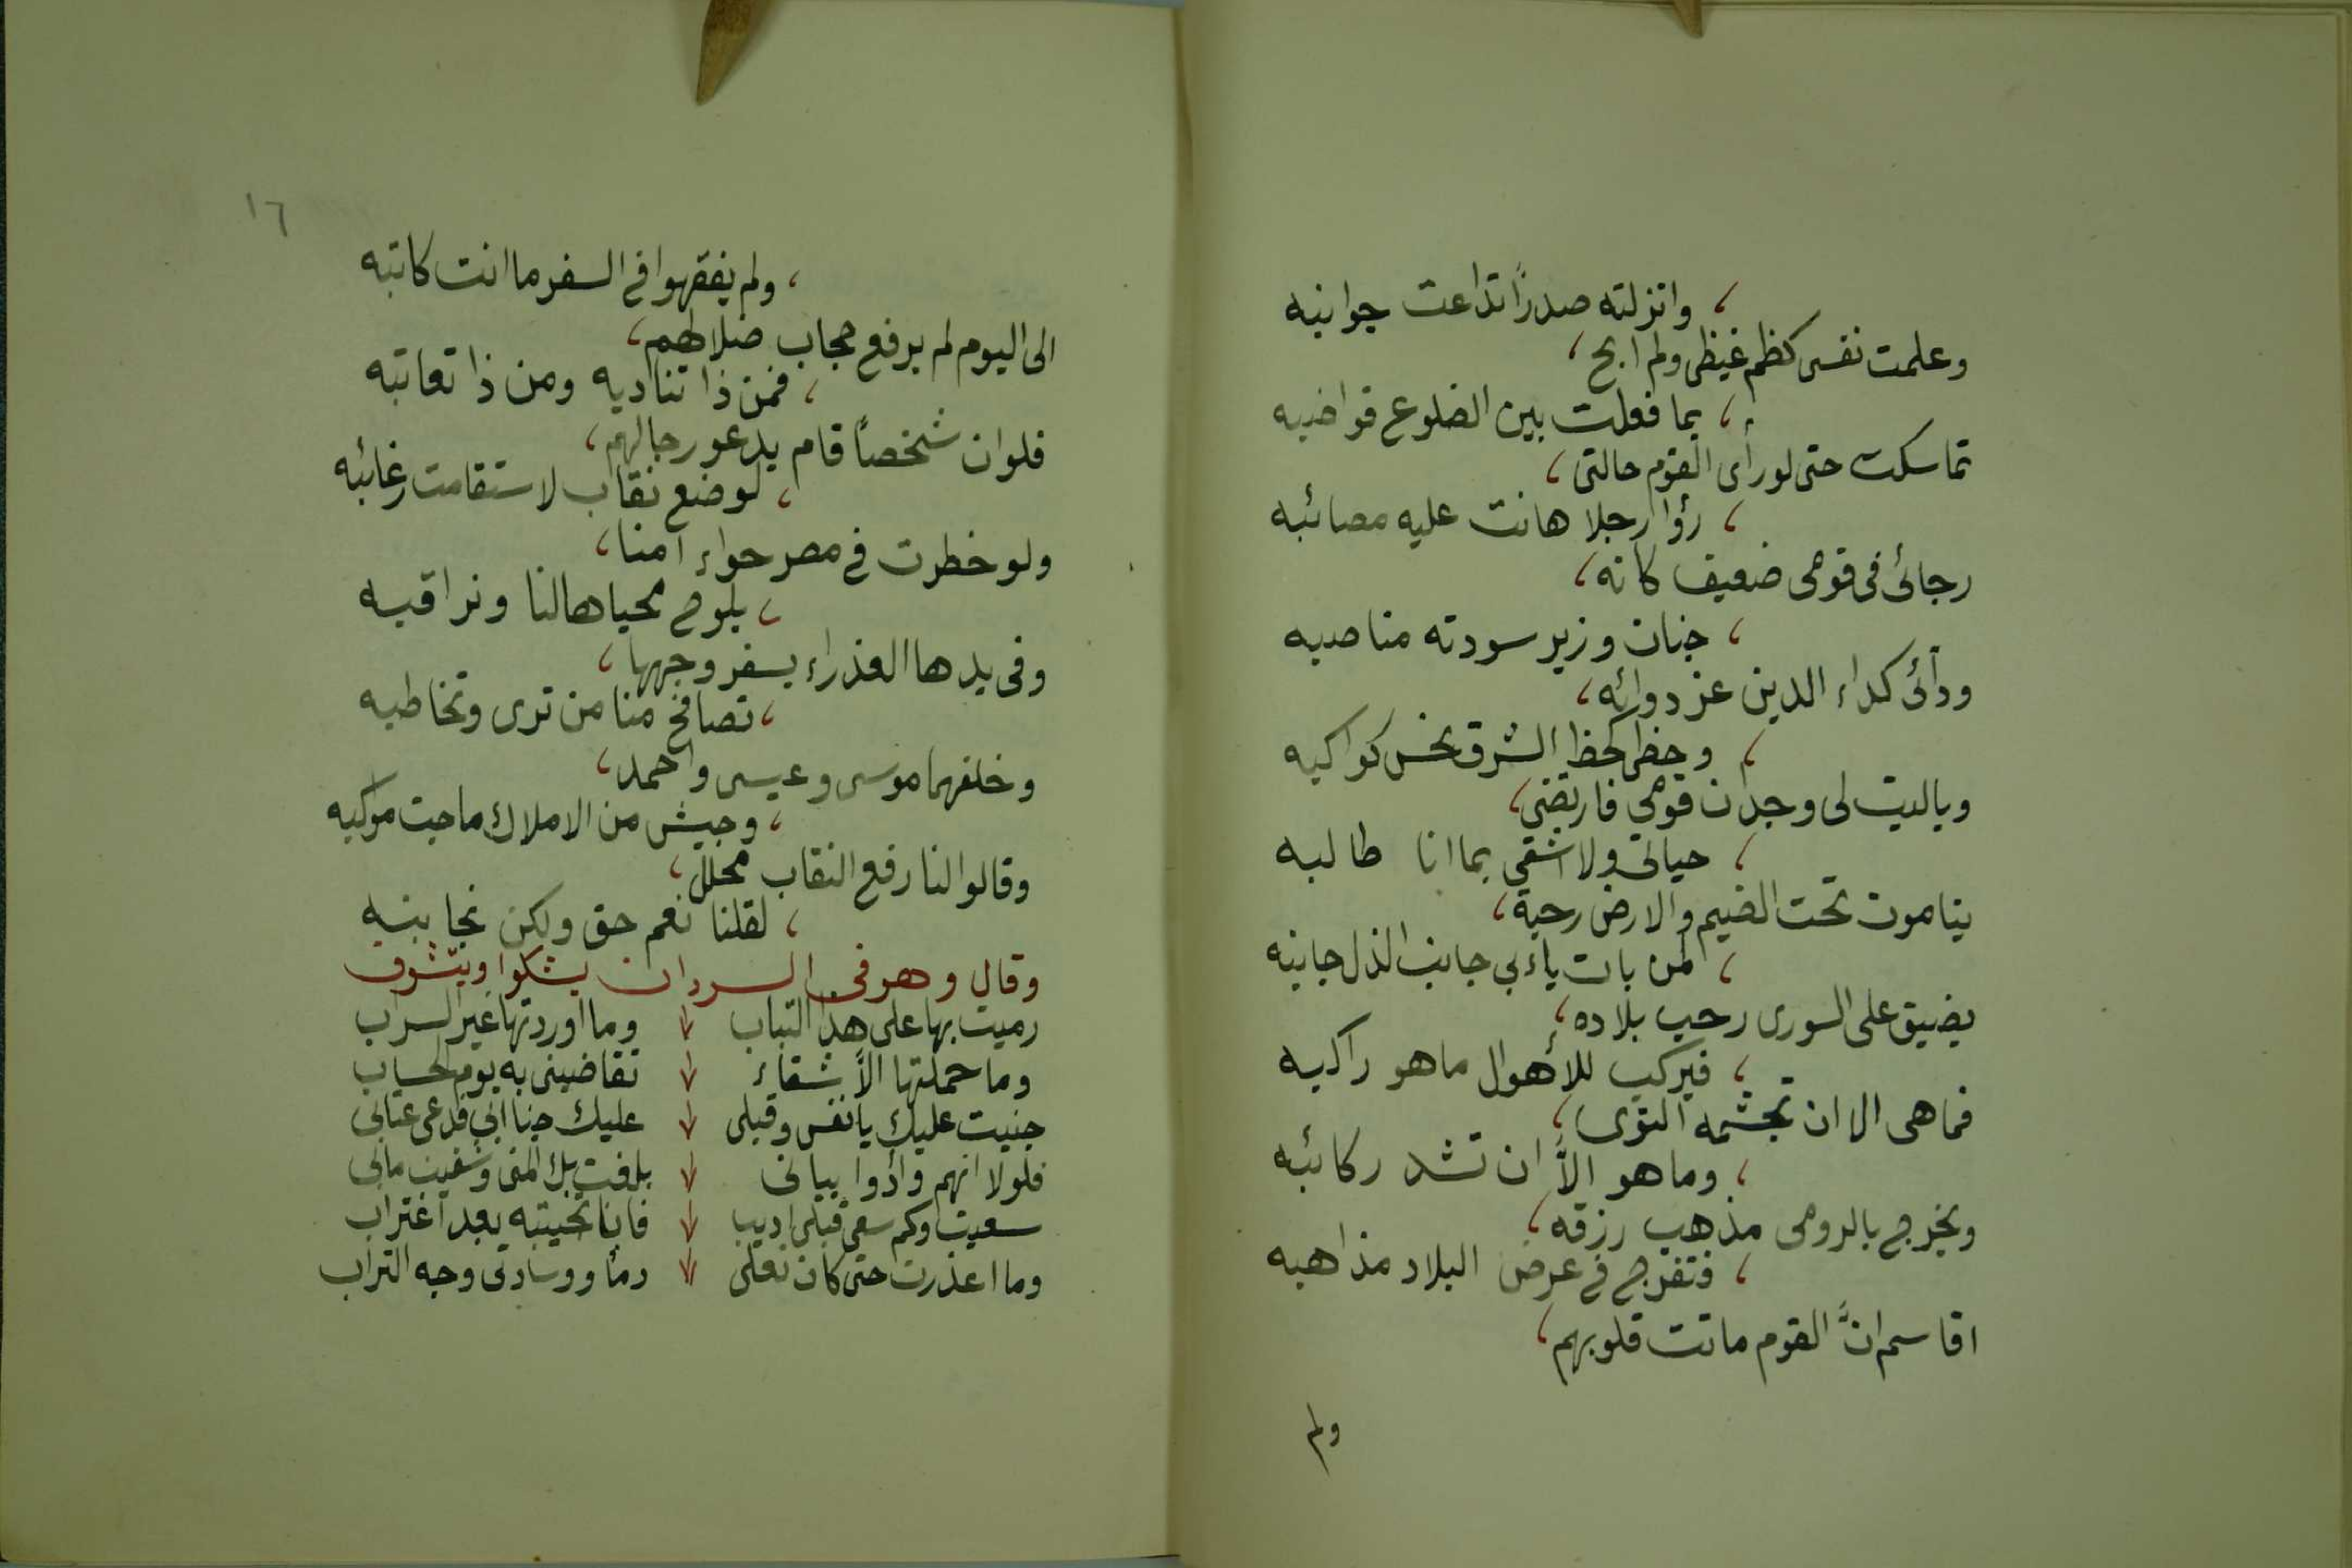 ، وانزلته صدرًا تداعت جوانبه
وعلمت نفسى كظم غيظى ولم ابح ،
، بما فعلت بين الضلوع قواضبه
تماسكت حتى لو رأى القوم حالتى ،
، رؤا رجلا هانت عليه مصائبه
رجائى فى قومى ضعيف كانه ،
، جنان وزير سودته مناصبه
ودآئى كداء الدين عز دوائه ،
، وحظى كحظ الشرق نحس كواكبه
وياليت لى وجدان قومى فارتضى ،
، حياتى ولا اشقى بما انا طالبه
ينامون تحت الضيم والارض رحبة ،
، لمن بات يأبى جانب الذل جانبه
يضيق على السورى رحب بلاده ،
، فيركب للأهوال ما هو راكبه
فماهى الا ان تجشمه النوى ،
، وما هو الاَّ ان تشد ركائبه
ويخرج بالرومى مذهب رزقه ،
، فتفرج فى عرض البلاد مذاهبه
اقاسم انَّ القوم ماتت قلوبهم ،
ولم
١٦
، ولم يفقهوا فى السفر ما انت كاتبه
الى اليوم لم يرفع حجاب ضلالهم ،
، فمن ذا تناديه ومن ذا تعاتبه
فلو ان شخصاً قام يدعو رجالهم ،
، لوضع نقاب لاستقامت رغائبه
ولو خطرت فى مصر حواء امنا ،
، يلوح محياها لنا ونراقبه
وفى يدها العذراء يسفر وجهها ،
، تصافح منا من ترى وتخاطبه
وخلفهما موسى وعيسى واحمد ،
، وجيش من الاملاك ماجت مواكبه
وقالوا لنا رفع النقاب محلل ،
، لقلنا نعم حق ولكن نجانبه
وقال وهو فى السودان يشكوا ويتشوق
رميت بها على هذا التباب وما اوردتها غير السراب
وما حملتها الاَّ شقاء تقاضينى به يوم الحساب
جنيت عليك يا نفس وقبلى عليك جنا ابى فدعى عتابى
فلولا انهم وأدوا بيانى بلغت بك المنى وشفيت مابى
سعيت وكم سعى قبلى اديب فاب بخيبته بعد اغتراب
وما اعذرت حتى كان نعلى دماً ووسادتى وجه التراب